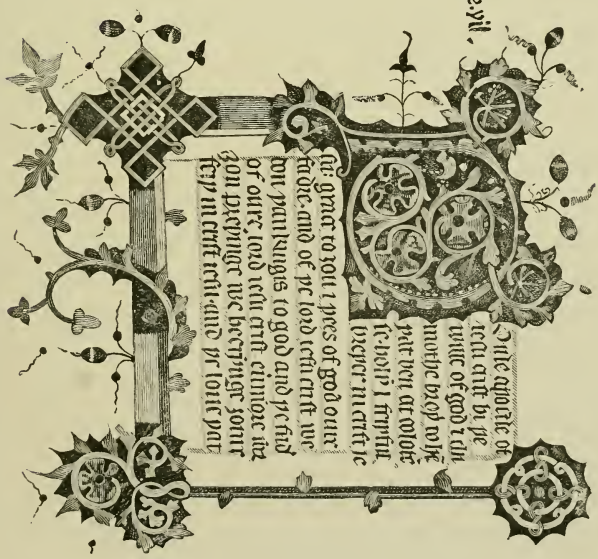 e.yil.
Oule apostle of
iesu crist bi þe
wille of god ⁊ tim
mothe broþ to hē
þat ben at colose
se·hooli ⁊ feiþful
breþer in crist ie
su: grace to ȝou ⁊ pees of god oure
fadir·and of þe lord iesu crist we
don þankingis to god and þe fad
of oure lord iesu crist euimore for
ȝou preynge we heerynge ȝoure
feiþ in crist iesu·and þe loue þat